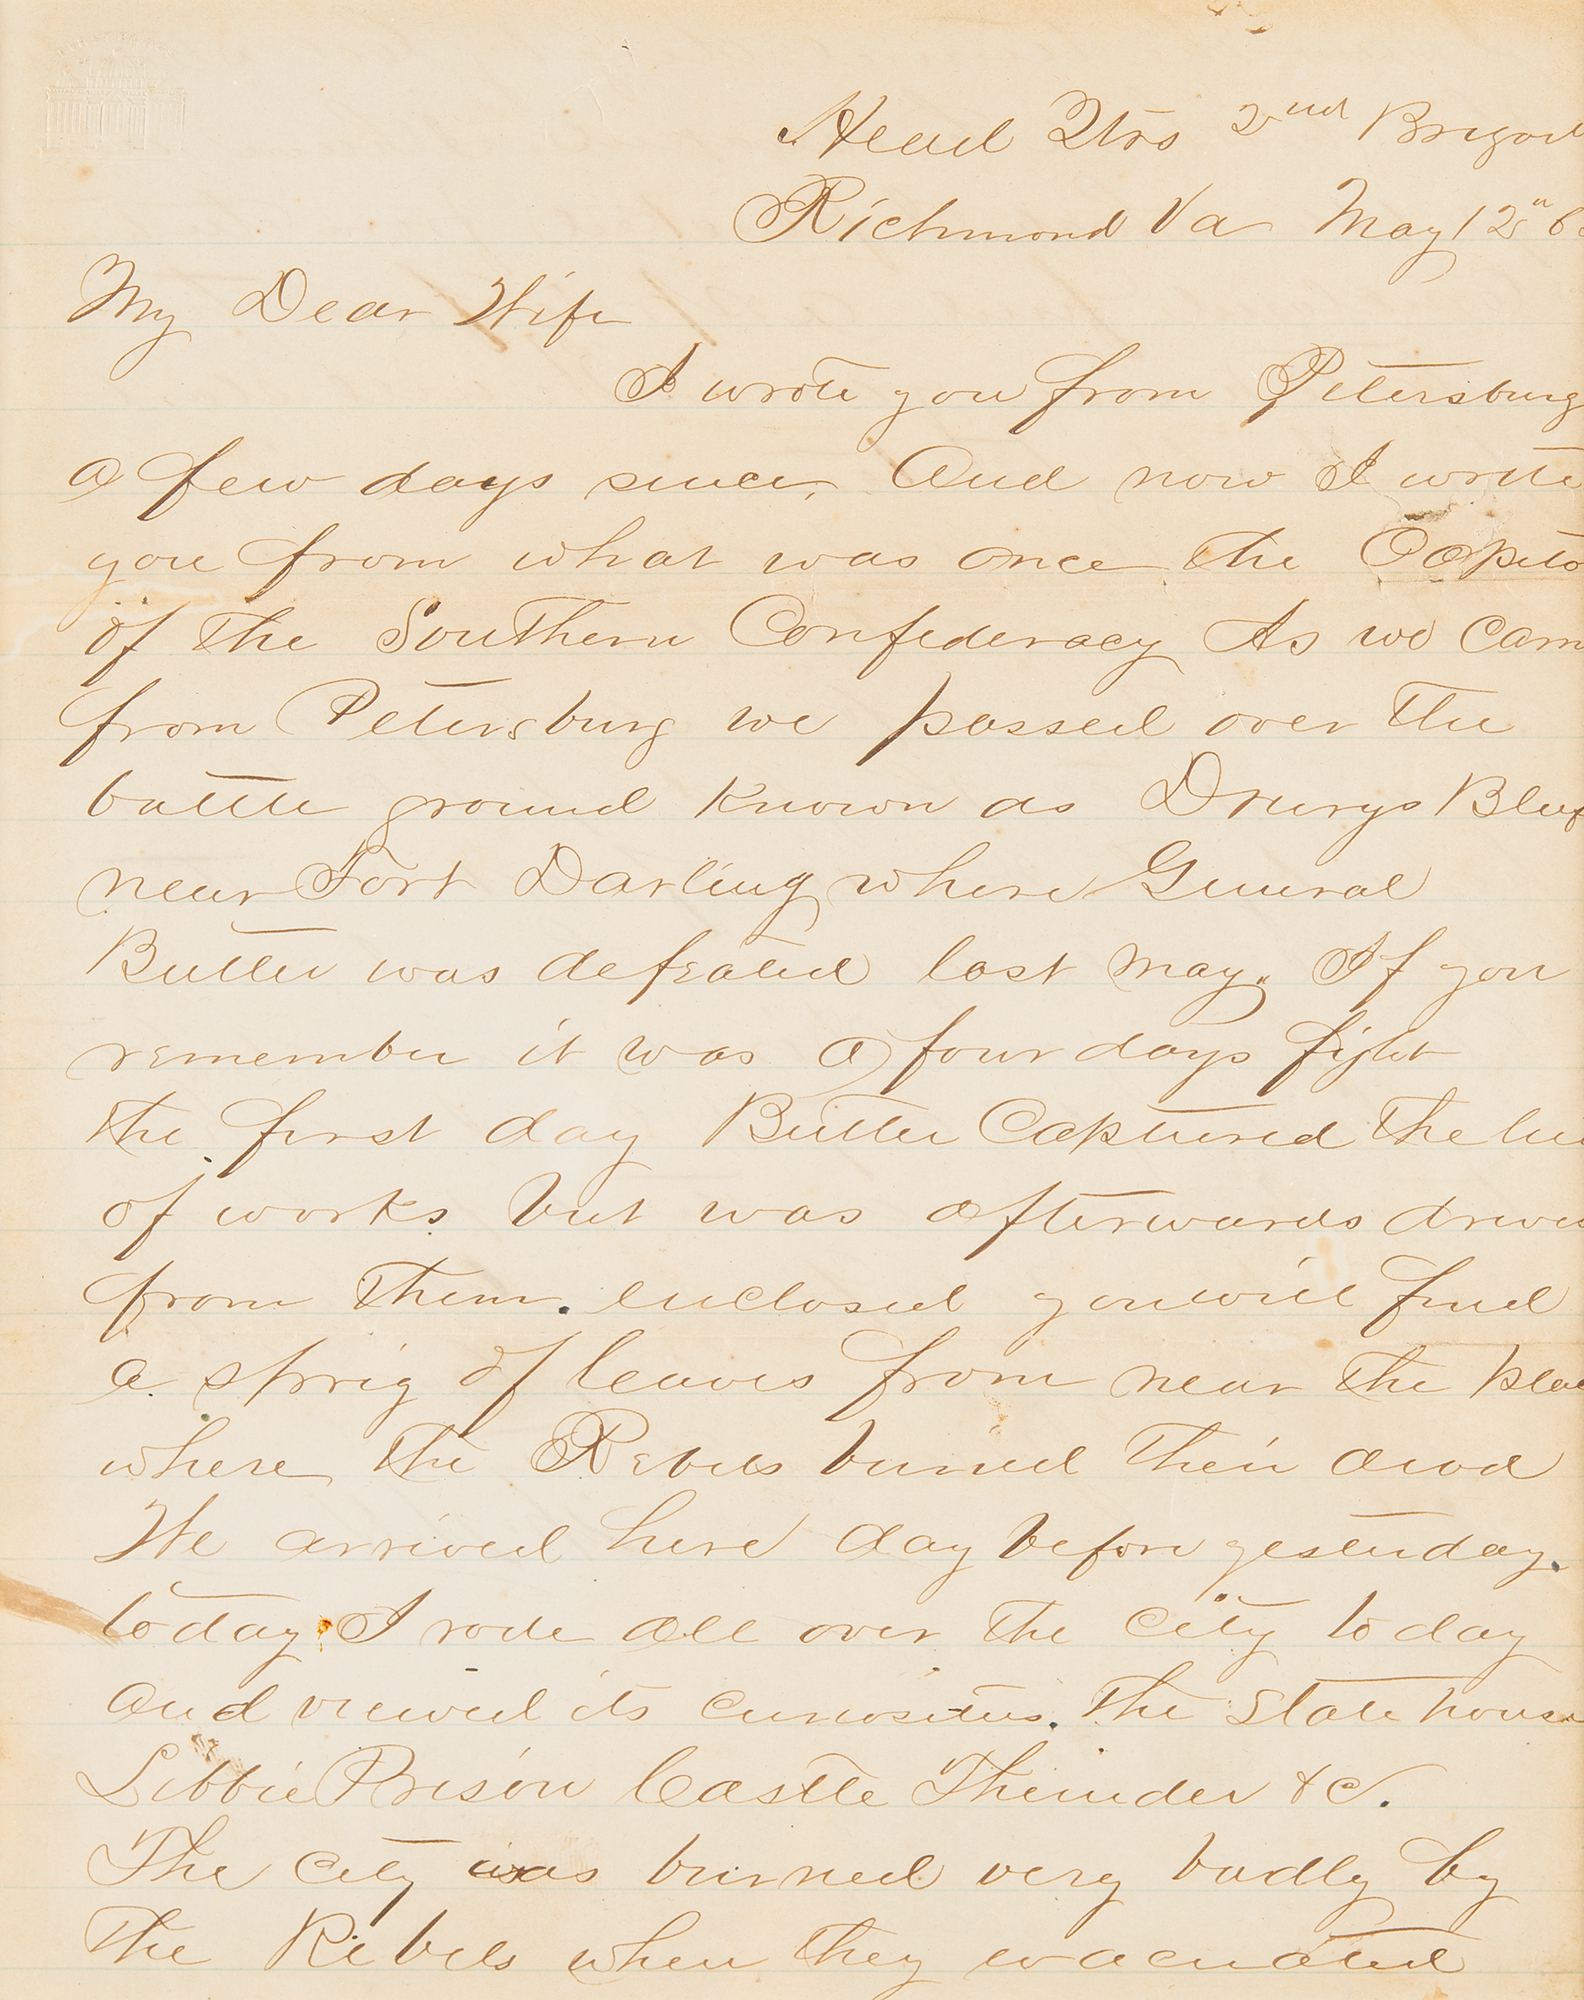 Head Qtrs 2nd Brigad
Richmond Va May 12" 6
My Dear Wife
I wrote you from Petersburg
a few days since, And now I write
you from what was once the Capito
of the Southern Confederacy As we Cam
from Petersburg we passed over the
battle ground Known as Drurys Bluf
near Fort Darling where General
Butler was defeated last May. If you
remember it was a four days fight
the first day Butler Captured the lin
of works but was afterwards driven
from them. enclosed you will find
a sprig of leaves from near the plac
where the Rebels buried their dead
We arrived here day before yesterday.
to day I rode all over the city to day
and viewed its curiosities. The State house
Libbie Prison Castle Thunder &c.
The city was burned very badly by
the Rebels when they evacuated